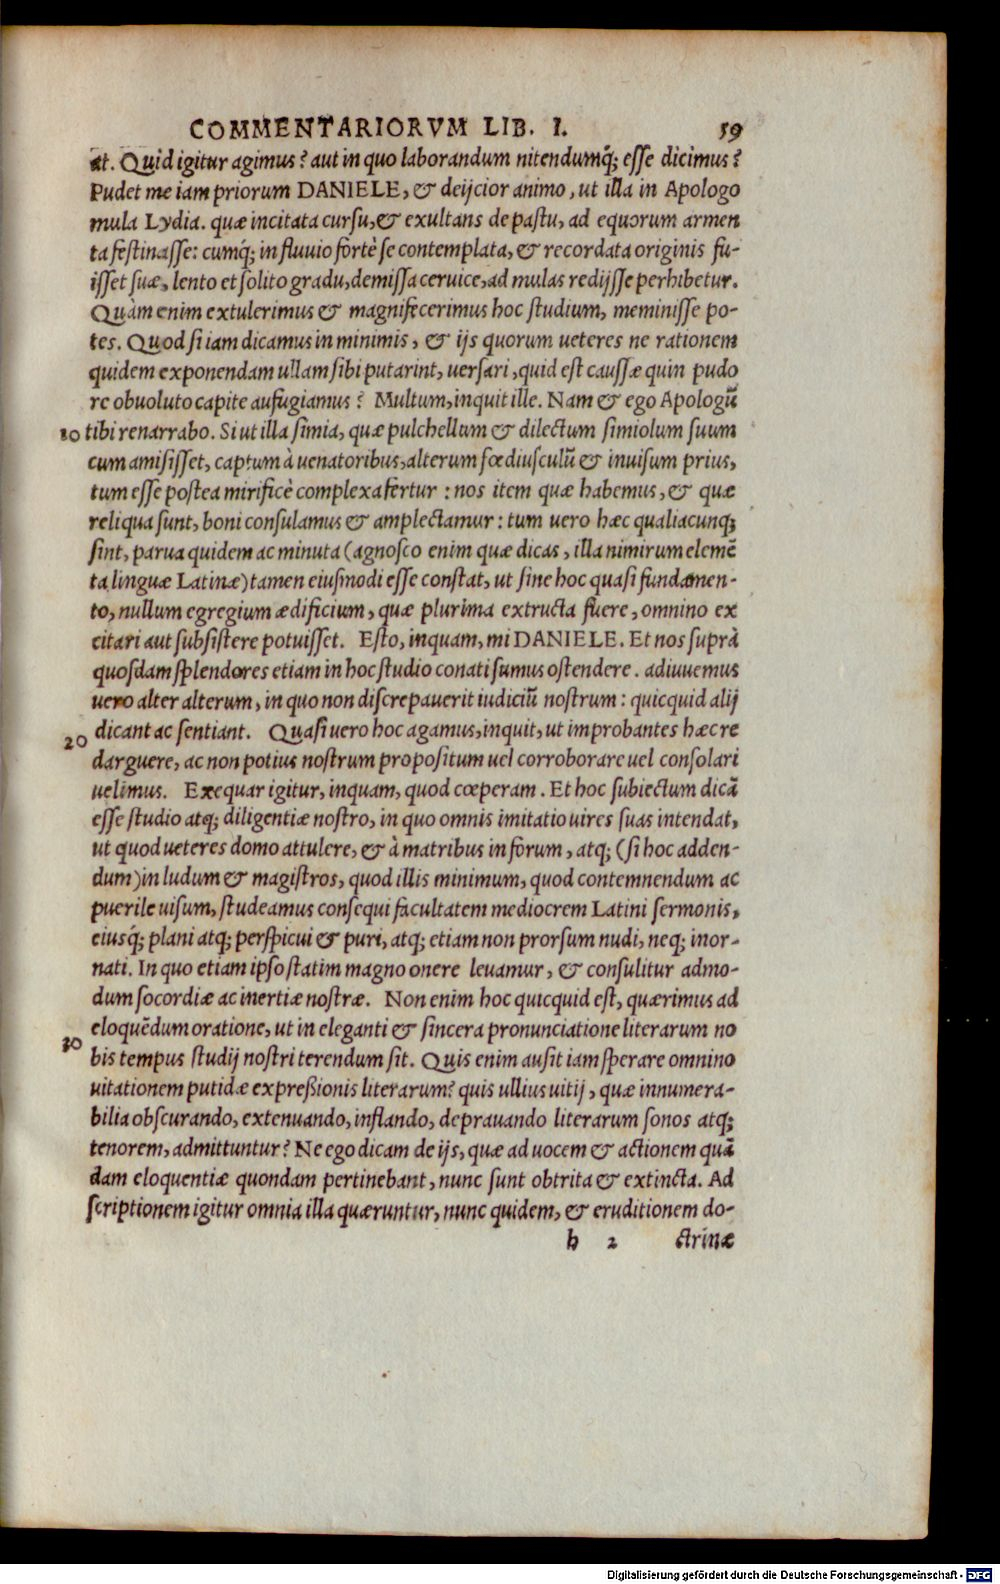 COMMENTARIORVM LIB. I. 59
at. Quid igitur agimus? aut in quo laborandum nitendumq́; esse dicimus?
Pudet me iam priorum DANIELE, & deijcior animo, ut illa in Apologo
mula Lydia. quæ incitata cursu, & exultans de pastu, ad equorum armen
ta festinasse: cumq́; in fluuio fortè se contemplata, & recordata originis fu-
isset suæ, lento et solito gradu, demissa ceruice, ad mulas redijsse perhibetur.
Quàm enim extulerimus & magnifecerimus hoc studium, meminisse po-
tes. Quod si iam dicamus in minimis, & ijs quorum ueteres ne rationem
quidem exponendam ullam sibi putarint, uersari, quid est caussæ quin pudo
re obuoluto capite aufugiamus? Multum, inquit ille. Nam & ego Apologũ
10 tibi renarrabo. Si ut illa simia, quæ pulchellum & dilectum simiolum suum
cum amisisset, captum à uenatoribus, alterum fœdiusculũ & inuisum prius,
tum esse postea mirificè complexa fertur: nos item quæ habemus, & quæ
reliqua sunt, boni consulamus & amplectamur: tum uero hæc qualiacunq;
sint, parua quidem ac minuta (agnosco enim quæ dicas, illa nimirum elemẽ
ta linguæ Latinæ) tamen eiusmodi esse constat, ut sine hoc quasi fundamen-
to, nullum egregium ædificium, quæ plurima extructa fuere, omnino ex
citari aut subsistere potuisset. Esto, inquam, mi DANIELE. Et nos suprà
quosdam splendores etiam in hoc studio conati sumus ostendere. adiuuemus
uero alter alterum, in quo non discrepauerit iudiciũ nostrum: quicquid alij
20 dicant ac sentiant. Quasi uero hoc agamus, inquit, ut improbantes hæc re
darguere, ac non potius nostrum propositum uel corroborare uel consolari
uelimus. Exequar igitur, inquam, quod cœperam. Et hoc subiectum dicã
esse studio atq; diligentiæ nostro, in quo omnis imitatio uires suas intendat,
ut quod ueteres domo attulere, & à matribus in forum, atq; (si hoc adden-
dum) in ludum & magistros, quod illis minimum, quod contemnendum ac
puerile uisum, studeamus consequi facultatem mediocrem Latini sermonis,
eiusq́; plani atq; perspicui & puri, atq; etiam non prorsum nudi, neq; inor-
nati. In quo etiam ipso statim magno onere leuamur, & consulitur admo-
dum socordiæ ac inertiæ nostræ. Non enim hoc quicquid est, quærimus ad
eloquẽdum oratione, ut in eleganti & sincera pronunciatione literarum no
30 bis tempus studij nostri terendum sit. Quis enim ausit iam sperare omnino
uitationem putidæ expreßionis literarum? quis ullius uitij, quæ innumera-
bilia obscurando, extenuando, inflando, deprauando literarum sonos atq;
tenorem, admittuntur? Ne ego dicam de ijs, quæ ad uocem & actionem quã
dam eloquentiæ quondam pertinebant, nunc sunt obtrita & extincta. Ad
scriptionem igitur omnia illa quæruntur, nunc quidem, & eruditionem do-
h 2 ctrinæ
Digitalisierung gefördert durch die Deutsche Forschungsgemeinschaft - DFG